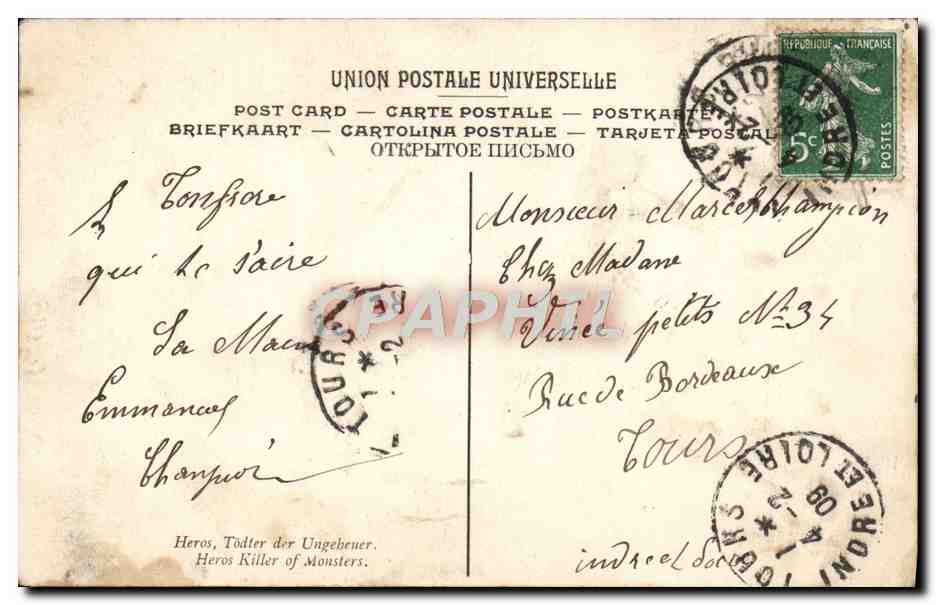 UNION POSTALE UNIVERSELLE
POST CARD — CARTE POSTALE — POSTKARTE
BRIEFKAART — CARTOLINA POSTALE — TARJETA POSTAL
ОТКРЫТОЕ ПИСЬМО
REPUBLIQUE FRANÇAISE
5c
POSTES
TOURS
INDRE ET LOIRE
Ton frere
qui te s'aire
La Main
Emmanuel
Champion
Monsieur Marcel Champion
Chez Madane
Petits Nº 34
Rue de Bordeaux
Tours
indre et Loire
TOURS
1 * -2 09
TOURS
INDRE ET LOIRE
1 * 4 -2 09
CPAPHIL
Heros, Tödter der Ungeheuer.
Heros Killer of Monsters.